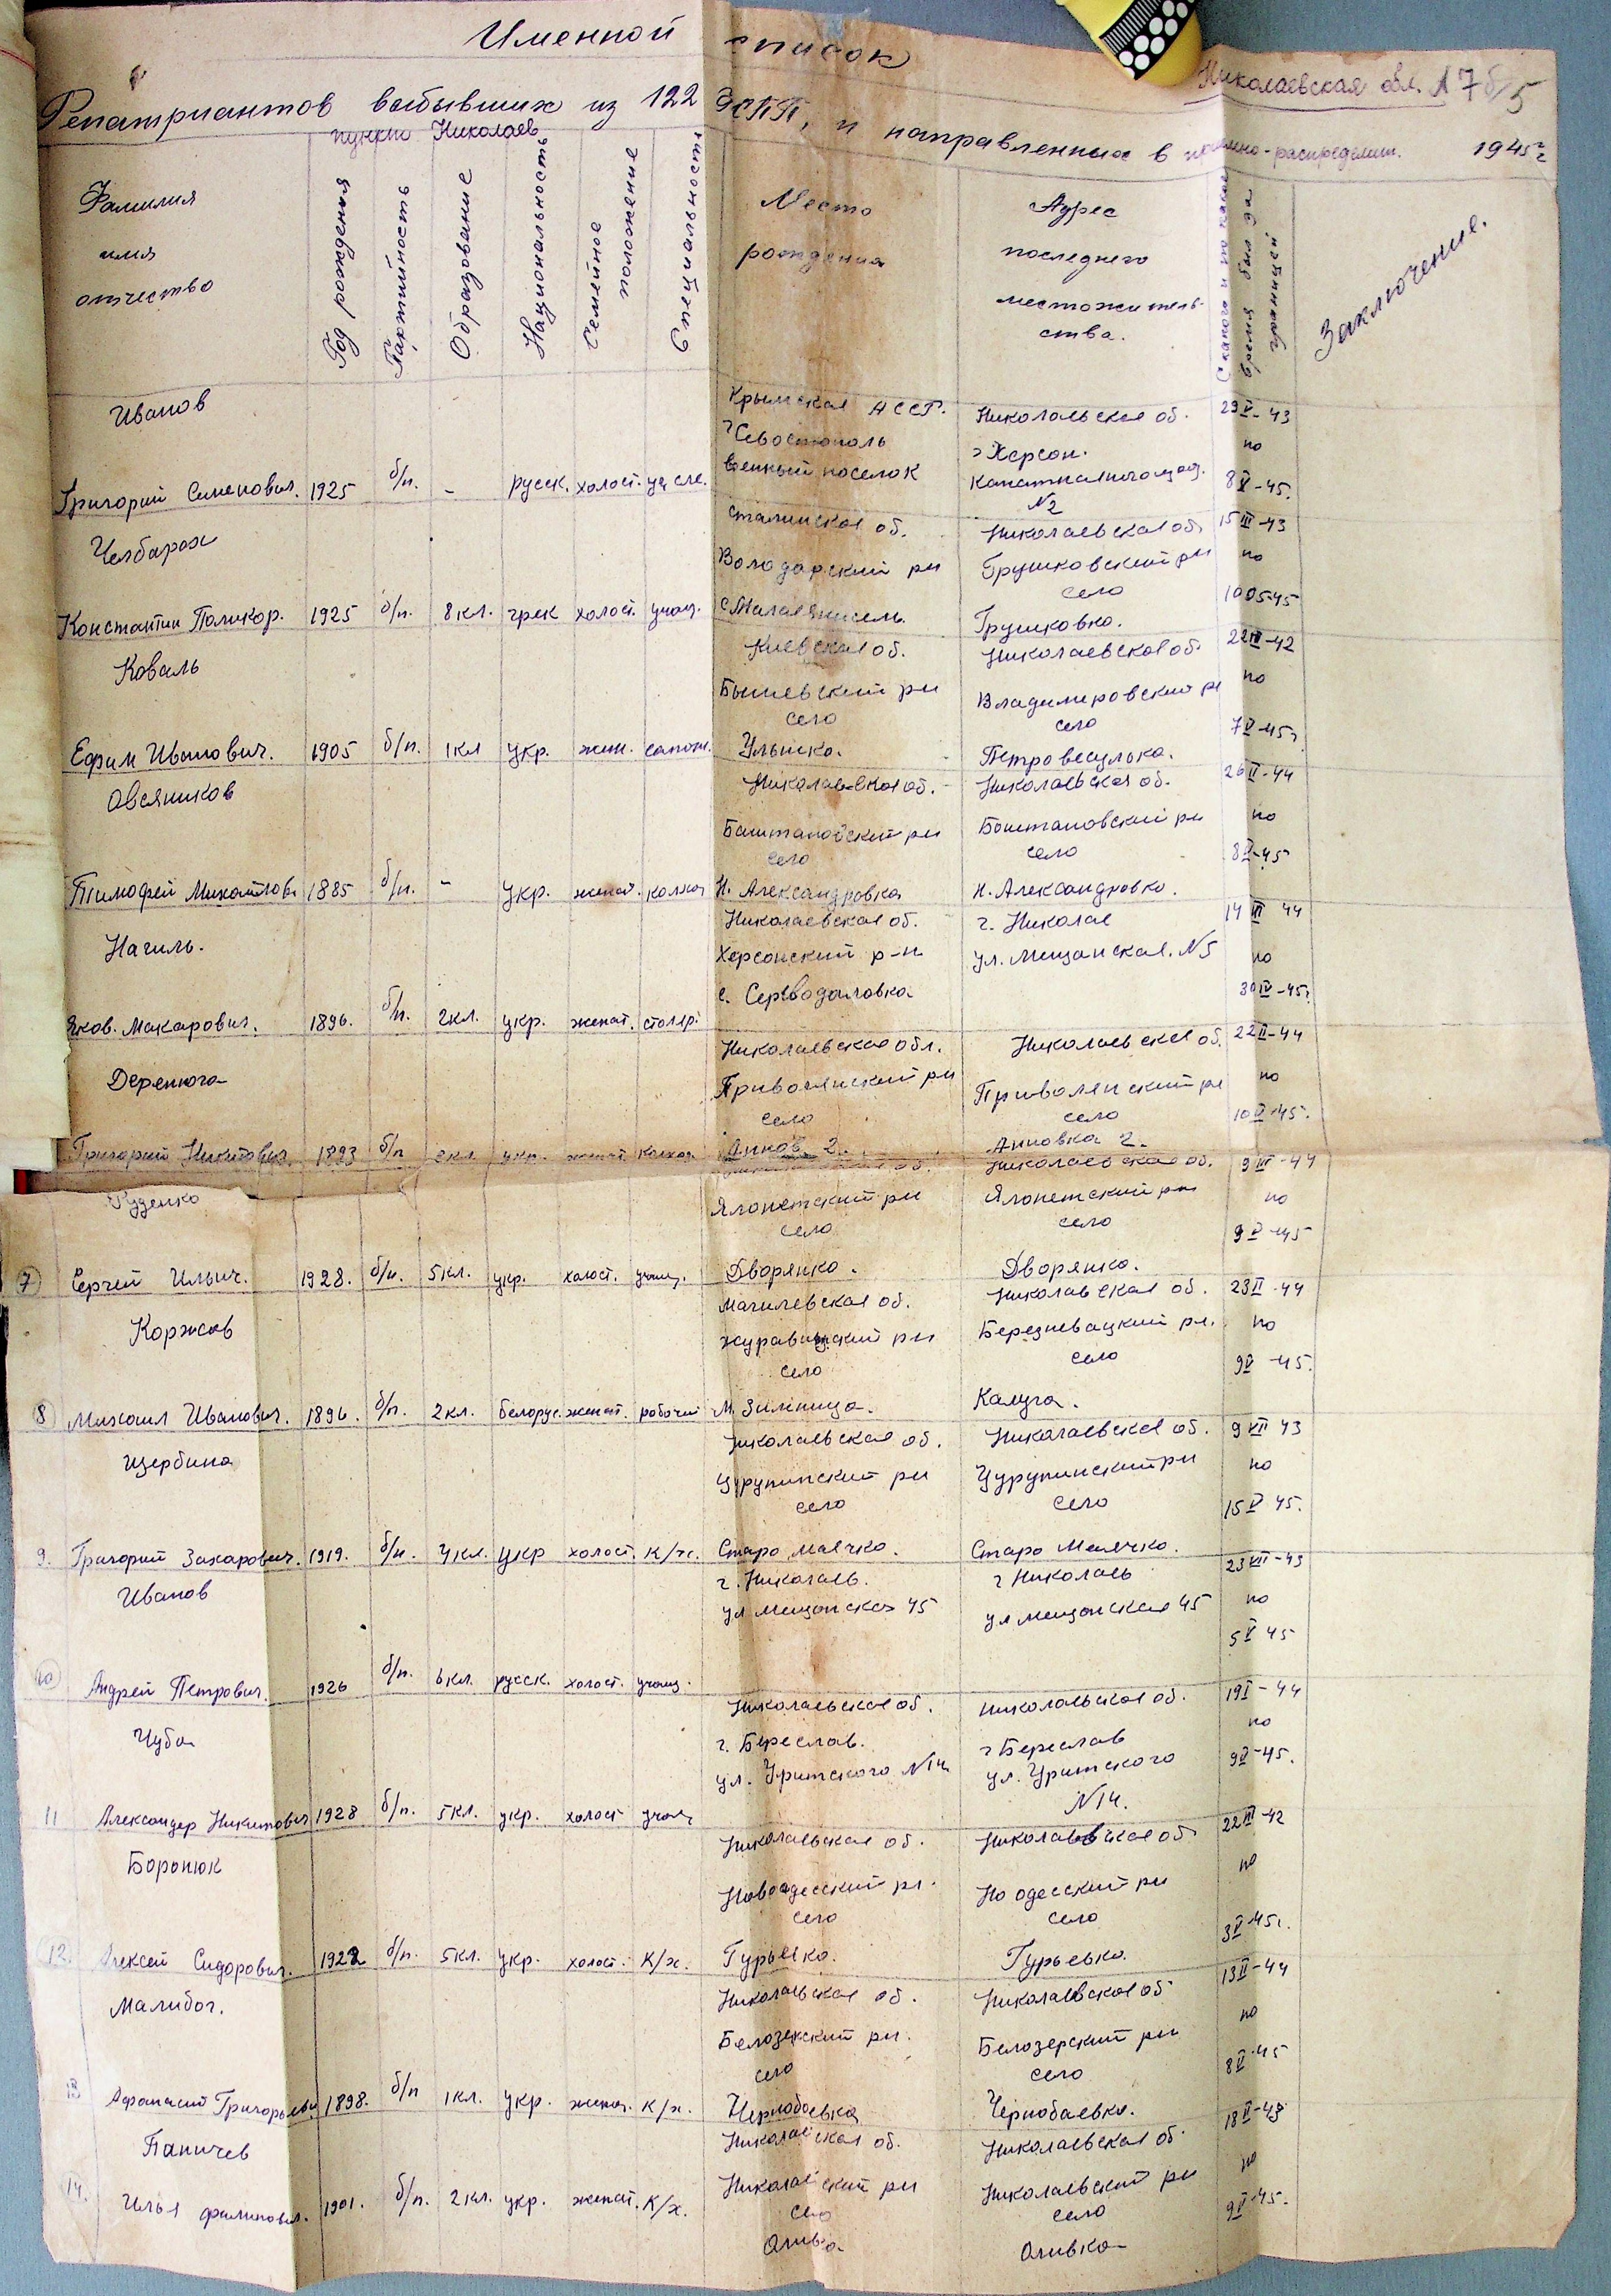 Именной список
Николаевская обл. 7
Репатриантов выбывших из 122 и направленных в приемно-распределит. 1945 г
пункт Николаев
Фамилия имя отчество
Год рождения
Партийность
Образование
Национальность
Семейное положение
Специальность
Место рождения
Адрес последнего местожитель-ства.
время был за границей
Заключение.
Иванов Крымская АССР. Николаевская об. 29 V-43
г Севостополь г Херсон. по
Григорий Семенович. 1925 б/п. - русск. холост. военный поселок №2 8 V-45.
Сталинская об. Николаевская об. 15 III-43
Володарский рн рн по
село
Константин Поликор. 1925 б/п. 8кл. грек холост. учащ. Грушковка. 10 05 45
Коваль Киевская об. Николаевская об. 22 III-42
рн Владимировский рн по
село село 7 V-45г
Ефим Иванович. 1905 б/п. 1кл укр. жен. сапож.
Овсяников Николаевская об. Николаевская об. 26 II-44
Баштановский рн Баштановский рн по
село село 8 V-45
Тимофей Михайлов. 1885 б/п. - укр. женат. колхоз Н. Александровка Н. Александровка.
Николаевская об. г. Николае 14 III 44
Нагиль. Херсонский р-н ул. Мещанская. №5 по
30 IV-45г
Яков. Макарович. 1896. б/п. 2кл. укр. женат. столяр.
Николаевская обл. Николаевская об. 22 II-44
Деренюга рн рн по
село село 10 V-45.
Григорий Никитович. 1893 б/п 2кл укр. женат колхоз Аннов. 2. Анновка 2.
Николаевская об. 9 III-44
Руденко рн рн по
село село 9 V-45
7 Сергей Ильич. 1928. б/п. 5кл. укр. холост. учащ. Дворянка. Дворянка.
Магилевская об. Николаевская об. 23 II-44
Коржов рн Березневацкий рн. по
село село 9 V-45.
8 Михаил Иванович. 1896. б/п. 2кл. Белорус. женат. рабочий Калуга.
Николаевская об. Николаевская об. 9 VII 43
Щербина Цурупинский рн Цурупинский рн по
село село 15 V 45.
9. Григорий Захарович. 1919. б/п. 4кл. укр холост. к/х. Старо Маячка. Старо Маячка.
г. Николаев. г Николаев 23 VII-43
Иванов ул Мещанская 45 ул Мещанская 45 по
5 V 45
10 Андрей Петрович. 1926 б/п. 6кл. русск. холост. учащ.
Николаевская об. Николаевская об. 19 I-44
Чуба г. Береслав. г Береслав по
ул. Урицкого №14 ул. Урицкого №14. 9 V-45.
11 Александр Никитович 1928 б/п. 5кл. укр. холост учащ
Николаевская об. Николаевская об 22 III-42
Боронюк Новоодесский рн. Но одесский рн по
село село 3 V 45г.
12. Алексей Сидорович. 1922 б/п. 5кл. укр. холост. К/х. Гурьевка. Гурьевка.
Николаевская об. Николаевская об 13 II-44
Малибог. Белозерский рн. Белозерский рн по
село село 8 V-45
13 Афанасий Григорьеви 1898. б/п 1кл. укр. женат. К/х. Чернобаевка Чернобаевка.
Николаевская об. Николаевская об. 18 II-43
Паничев Николаевский рн Николаевский рн по
село село 9 V-45.
14. Илья Филипович. 1901. б/п. 2кл. укр. женат. К/х.